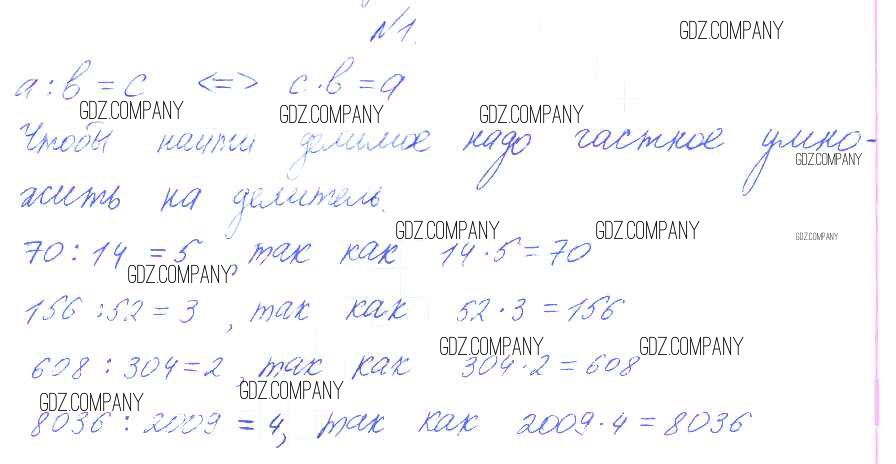 №1. GDZ.COMPANY
a : b = c <=> c · b = a
GDZ.COMPANY GDZ.COMPANY GDZ.COMPANY
Чтобы найти делимое надо частное умно-
GDZ.COMPANY
жить на делитель.
GDZ.COMPANY GDZ.COMPANY GDZ.COMPANY
70 : 14 = 5, так как 14 · 5 = 70
GDZ.COMPANY
156 : 52 = 3, так как 52 · 3 = 156
GDZ.COMPANY GDZ.COMPANY
608 : 304 = 2, так как 304 · 2 = 608
GDZ.COMPANY GDZ.COMPANY
8036 : 2009 = 4, так как 2009 · 4 = 8036